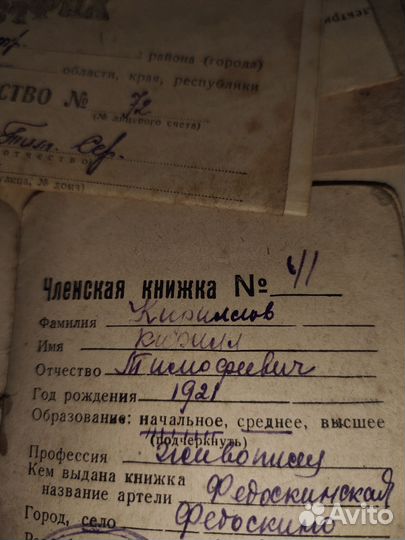 района (города)
области, края, республики
СТВО № 72
(№ лицевого счета)
Тим. Сер.
отчество
улица, № дома)
Членская книжка № 41
Фамилия Кириллов
Имя Кирилл
Отчество Тимофеевич
Год рождения 1921
Образование: начальное, среднее, высшее
(подчеркнуть)
Профессия живописец
Кем выдана книжка
название артели Федоскинская
Город, село Федоскино
Avito